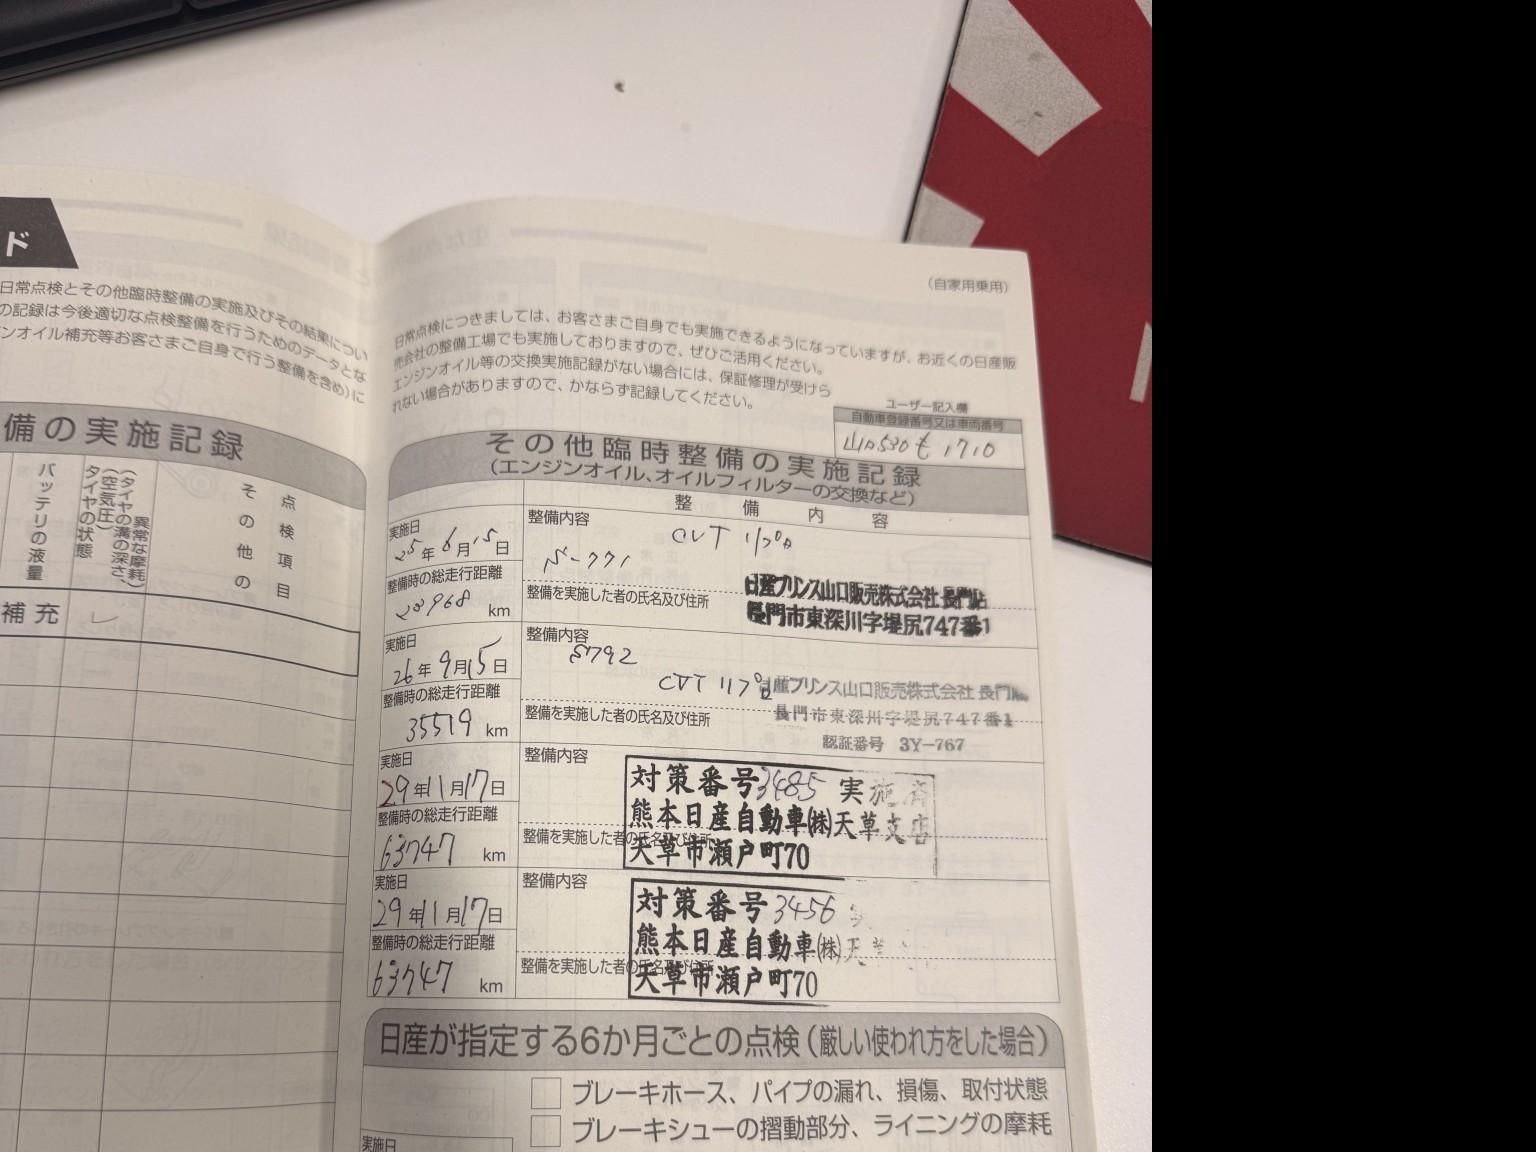 ド
日常点検とその他臨時整備の実施及びその結果につい
の記録は今後適切な点検整備を行うためのデータとな
ンオイル補充等お客さまご自身で行う整備を含め)に
備の実施記録
バッテリの液量
タイヤの状態
(空気圧)
(タイヤの溝の深さ、
異常な摩耗)
その他の
点検項目
補充
(自家用乗用)
日常点検につきましては、お客さまご自身でも実施できるようになっていますが、お近くの日産販
売会社の整備工場でも実施しておりますので、ぜひご活用ください。
エンジンオイル等の交換実施記録がない場合には、保証修理が受けら
れない場合がありますので、かならず記録してください。
ユーザー記入欄
自動車登録番号又は車両番号
山口530 も 1710
その他臨時整備の実施記録
(エンジンオイル、オイルフィルターの交換など)
整備内容
実施日
25年6月15日
整備時の総走行距離
km
整備内容
CVT
整備を実施した者の氏名及び住所
日産プリンス山口販売株式会社 長門店
長門市東深川字堤尻747番1
実施日
26年9月15日
整備時の総走行距離
35519 km
整備内容
S792
CVT
整備を実施した者の氏名及び住所
日産プリンス山口販売株式会社 長門店
長門市東深川字堤尻747番1
認証番号 3Y-767
実施日
29年11月17日
整備時の総走行距離
63747 km
整備内容
対策番号3485 実施済
熊本日産自動車(株)天草支店
整備を実施した者の氏名及び住所
天草市瀬戸町70
実施日
29年11月17日
整備時の総走行距離
63747 km
整備内容
対策番号3456
熊本日産自動車(株)天草
整備を実施した者の氏名及び住所
天草市瀬戸町70
日産が指定する6か月ごとの点検(厳しい使われ方をした場合)
ブレーキホース、パイプの漏れ、損傷、取付状態
ブレーキシューの摺動部分、ライニングの摩耗
実施日